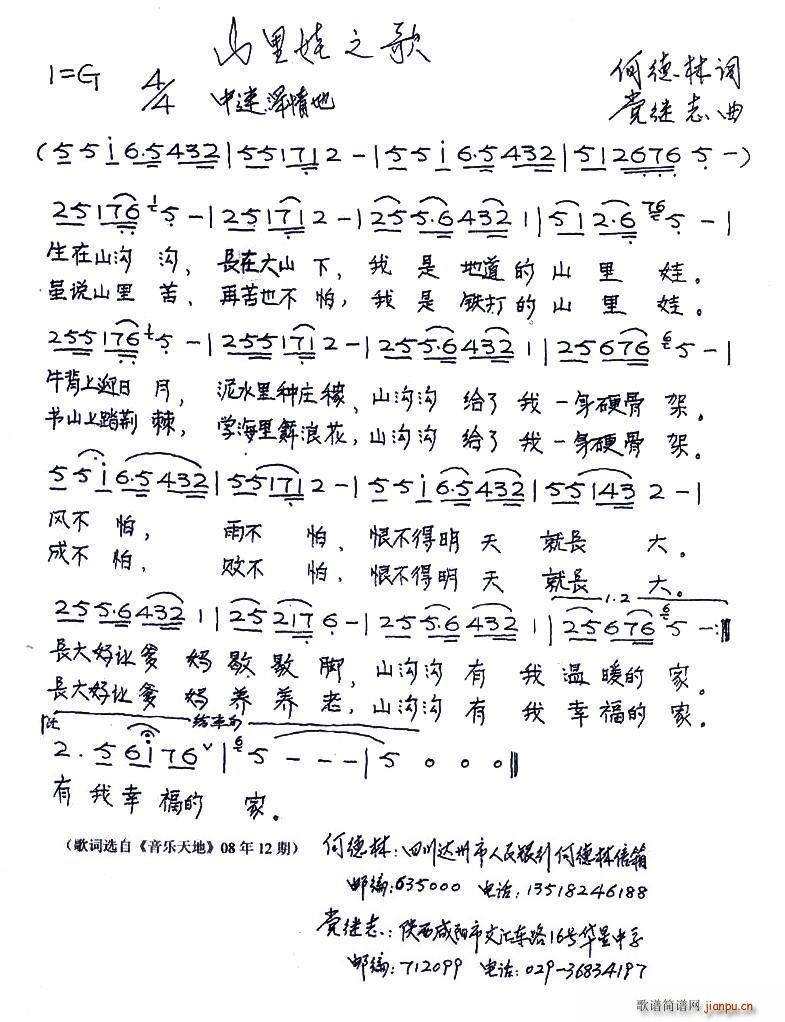 山里娃之歌
1=G 4/4 中速 深情地
何德林词
党继志曲
(5 5 i 6·5 4 3 2 | 5 5 1 7 1 2 - | 5 5 i 6·5 4 3 2 | 5 1 2 6 7 6 5 -)
2 5 1 7 6 1 5 - | 2 5 1 7 1 2 - | 2 5 5·6 4 3 2 1 | 5 1 2·6 76 5 - |
生在山沟 沟，長在大山 下，我 是 地道的 山 里 娃。
虽说山里 苦，再苦也不 怕，我 是 铁打的 山 里 娃。
2 5 5 1 7 6 1 5 - | 2 5 5 1 7 1 2 - | 2 5 5·6 4 3 2 1 | 2 5 6 7 6 6 5 - |
牛背上迎日 月，泥水里种庄稼，山沟沟 给了 我 一身硬骨 架。
书山上踏荆 棘，学海里舞浪花，山沟沟 给了 我 一身硬骨 架。
5 5 i 6·5 4 3 2 | 5 5 1 7 1 2 - | 5 5 i 6·5 4 3 2 | 5 5 1 4 3 2 - |
风不 怕，雨不 怕，恨不得明 天 就長 大。
成不 怕，败不 怕，恨不得明 天 就長 大。
1.2
2 5 5·6 4 3 2 1 | 2 5 2 1 7 6 - | 2 5 5·6 4 3 2 1 | 2 5 6 7 6 6 5 - :‖
長大好让爹 妈 歇 歇 脚，山沟沟 有 我 温 暖的 家。
長大好让爹 妈 养 养 老，山沟沟 有 我 幸 福的 家。
结束句
2. 5 6 i 7 6 ∨ | 6 5 - - - | 5 0 0 0 ‖
有 我 幸 福的 家。
（歌词选自《音乐天地》08 年 12 期）
何德林：四川达州市人民银行何德林信箱
邮编：635000 电话：13518246188
党继志：陕西咸阳市文汇东路16号华星中子
邮编：712099 电话：029-36834197
歌谱简谱网
jianpu.cn